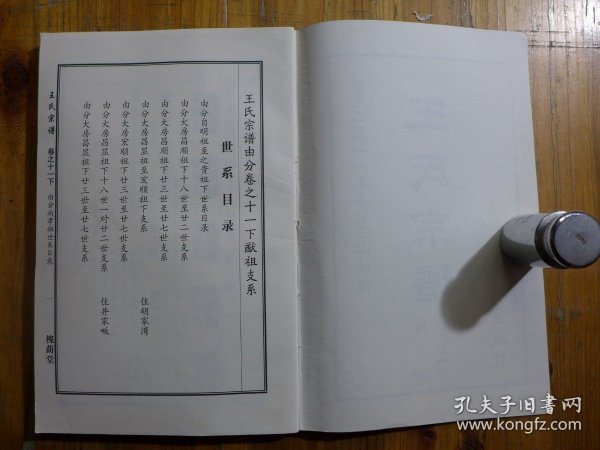 王氏宗谱由分卷之十一下猷祖支系
世系目录
由分自明祖至之贵祖下世系目录
由分大房昌顺祖下十八世至廿二世支系
由分大房昌顺祖下廿三世至廿七世支系
由分大房昌显祖至宏顺祖下支系 住胡家湾
由分大房宏顺祖下廿三世至廿七世支系
由分大房昌显祖下十八世一对廿二世支系 住井家畈
由分大房昌显祖下廿三世至廿七世支系
王氏宗谱 卷之十一下 由分尚孝祖世系目录 槐荫堂
孔夫子旧书网
www.kongfz.com